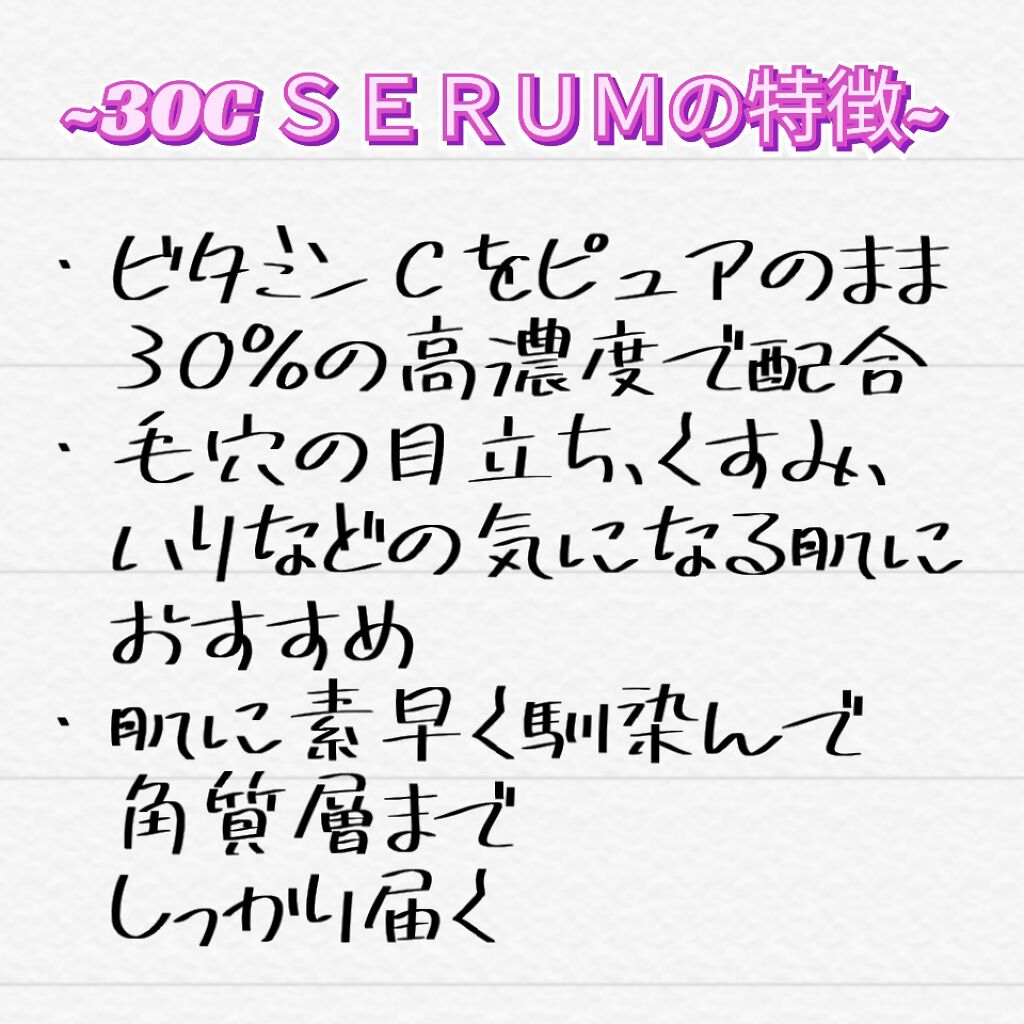 ~30C ＳＥＲＵＭの特徴~
・ビタミンCをピュアのまま
30%の高濃度で配合
・毛穴の目立ち、くすみ、
ハリなどの気になる肌に
おすすめ
・肌に素早く馴染んで
角質層まで
しっかり届く